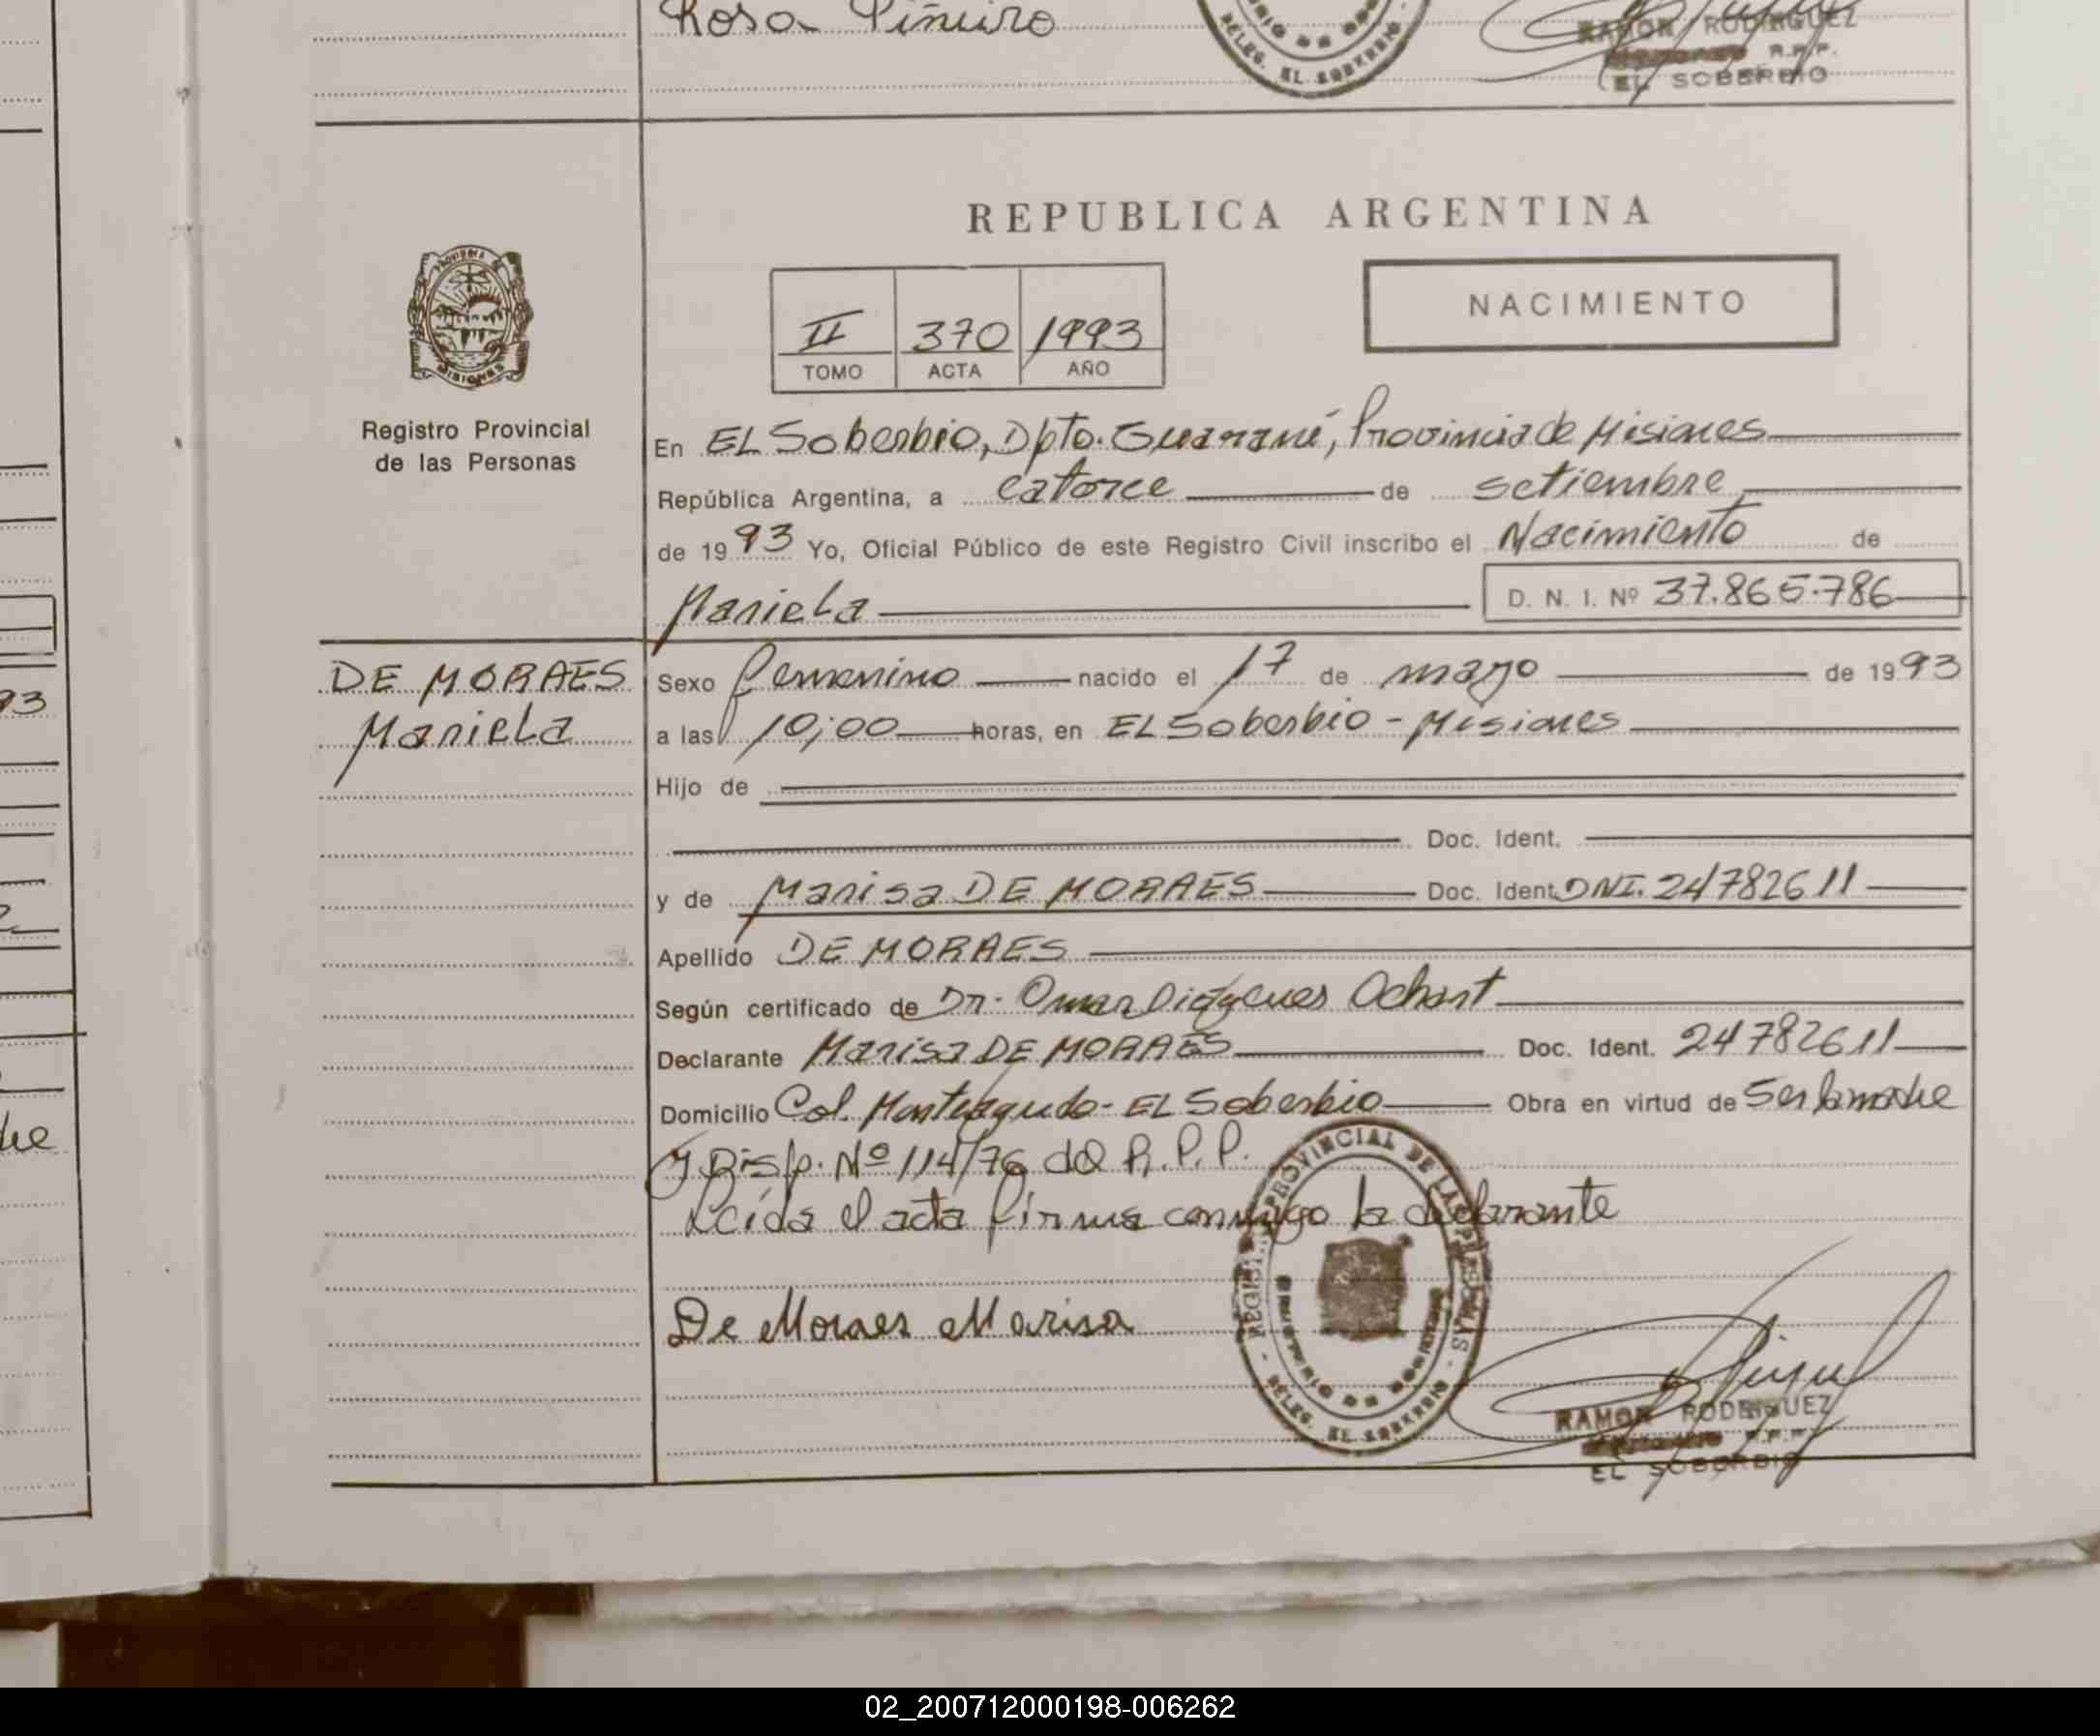 Rosa Piñeiro
DELEG. EL SOBERBIO
RAMON RODRIGUEZ
R.P.P.
EL SOBERBIO
REPUBLICA ARGENTINA
PROVINCIA DE
MISIONES
II 370 1993
TOMO ACTA AÑO
NACIMIENTO
Registro Provincial
de las Personas
En EL Soberbio, Dpto. Guaraní, Provincia de Misiones
República Argentina, a catorce de setiembre
de 1993 Yo, Oficial Público de este Registro Civil inscribo el Nacimiento de
Mariela D. N. I. Nº 37.865.786
DE MORAES
Mariela
Sexo femenino nacido el 17 de mayo de 1993
a las 10;00 horas, en EL Soberbio - Misiones
Hijo de
Doc. Ident.
y de Marisa DE MORAES Doc. Ident. DNI. 24782611
Apellido DE MORAES
Según certificado de Dr. Omar Ochart
Declarante Marisa DE MORAES Doc. Ident. 24782611
Domicilio Col. Monteagudo - EL Soberbio Obra en virtud de Ser la madre
y Disp. Nº 114/76 del R.P.P.
Leida el acta firma conmigo la declarante
De Moraes Marisa
REGISTRO PROVINCIAL DE LAS PERSONAS
DELEG. EL SOBERBIO
RAMON RODRIGUEZ
R.P.P.
EL SOBERBIO
93
02_200712000198-006262